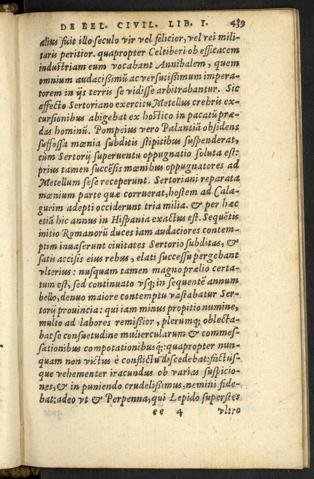 DE BEL. CIVIL. LIB. I. 439
alius fuit illo seculo vir vel felicior, vel rei mili-
taris peritior. quapropter Celtiberi ob efficacem
industriam eum vocabant Annibalem, quem
omnium audacissimū ac versutissimum impera-
torem in ijs terris se vidisse arbitrabantur. Sic
affecto Sertoriano exercitu, Metellus crebris ex-
cursionibus abigebat ex hostico in pacatū præ-
das hominū. Pompeius vero Palantiā obsidens
suffossa mœnia subditis stipitibus suspenderat,
cùm Sertorij superuentu oppugnatio soluta est:
prius tamen succēsis mœnibus oppugnatores ad
Metellum sese receperunt. Sertoriani reparata
mœnium parte quæ corruerat, hostem ad Cala-
gurim adepti occiderunt tria milia. & per hæc
etiā hic annus in Hispania exactus est. Sequētis
initio Romanorū duces iam audaciores contem-
ptim inuaserunt ciuitates Sertorio subditas, &
satis accisis eius rebus, elati successu pergebant
vlterius: nusquam tamen magno prælio certa-
tum est, sed continuato vsq; in sequentē annum
bello, denuo maiore contemptu vastabatur Ser-
torij prouincia: qui iam minus propitio numine,
multo ad labores remissior, plerunq; oblecta-
bat se consuetudine muliercularum & commes-
sationibus compotationibusq́; quapropter nun-
quam non victus è conflictu discedebat: factusq́-
que vehementer iracundus ob varias suspicio-
nes, & in puniendo crudelissimus, nemini fide-
bat: adeo vt & Perpenna, qui Lepido superstes
ee 4 vltro